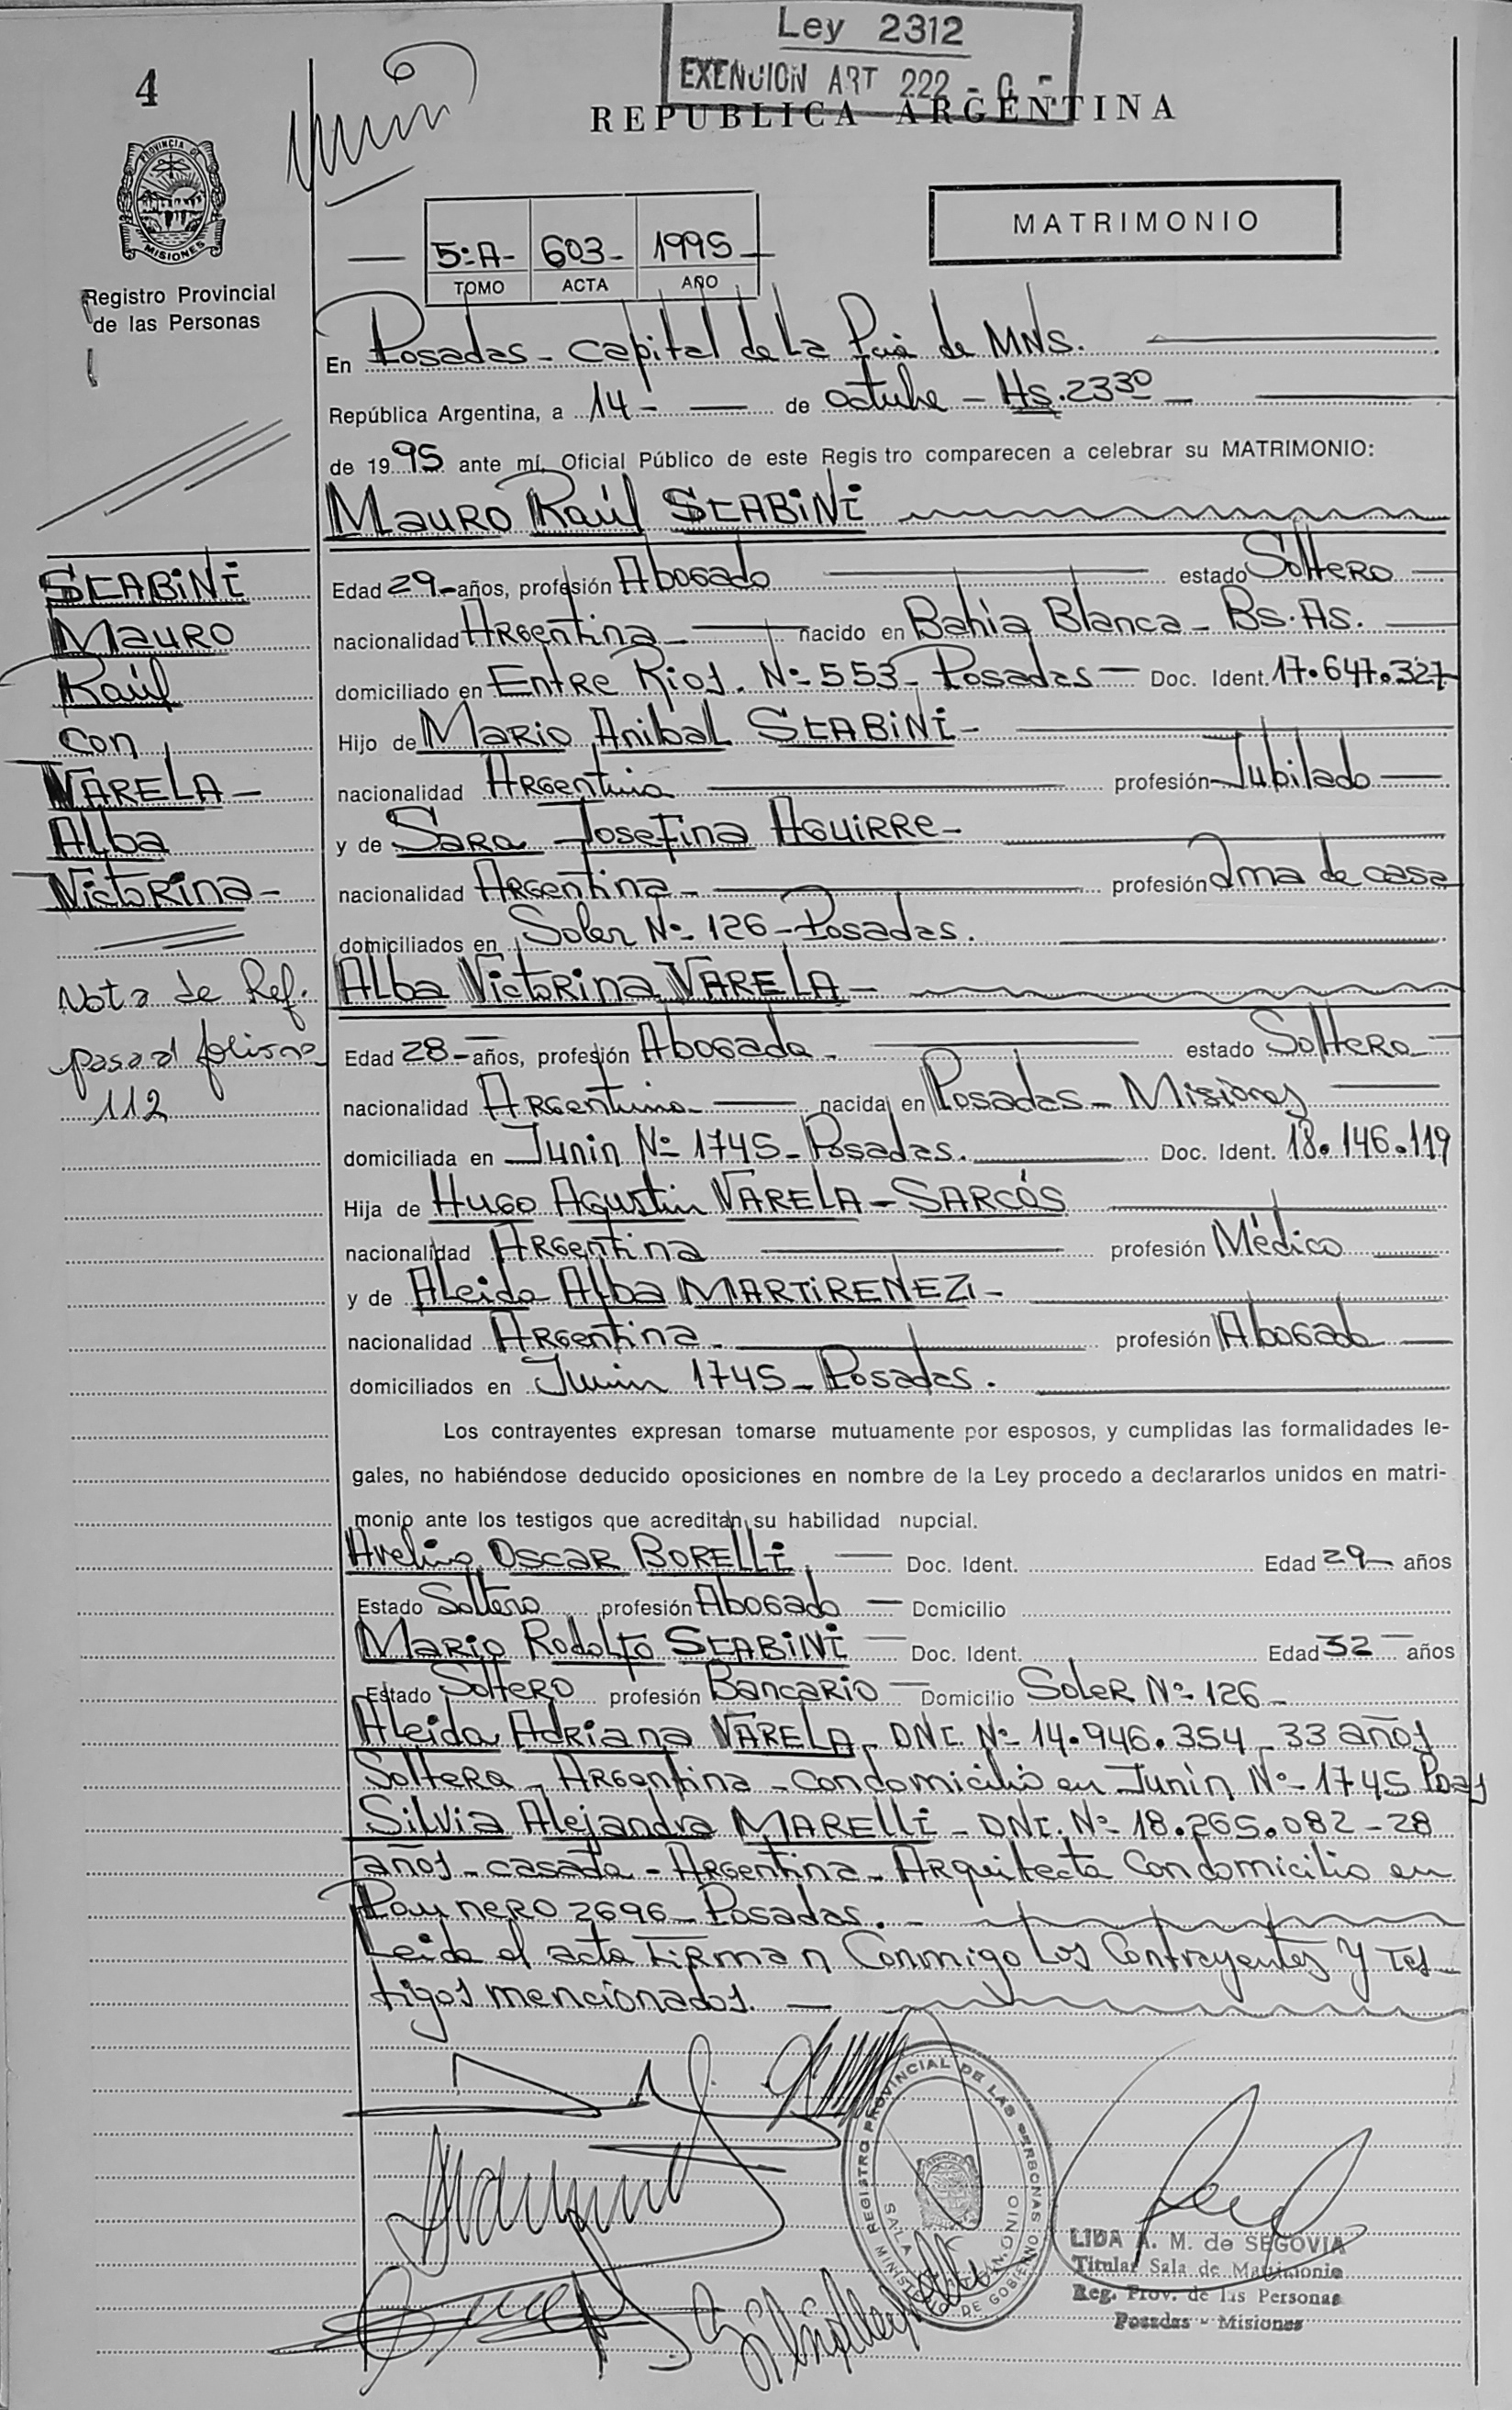 Ley 2312
EXENCION ART 222 - C F
4
REPUBLICA ARGENTINA
PROVINCIA DE
MISIONES
Registro Provincial
de las Personas
MATRIMONIO
5:A- 603- 1995
TOMO ACTA AÑO
En Posadas - Capital de La Pcia de MNS.
República Argentina, a 14 - de octubre - Hs. 23³⁰
de 1995 ante mí, Oficial Público de este Registro comparecen a celebrar su MATRIMONIO:
Mauro Raúl STABiNi
STABiNi
Mauro
Raúl
con
VARELA -
Alba
Victorina -
Nota de Ref.
pasa al
112
Edad 29 - años, profesión Abogado estado Soltero
nacionalidad Argentina nacido en Bahia Blanca - Bs. As.
domiciliado en Entre Rios. Nº 553 - Posadas - Doc. Ident. 17.647.327
Hijo de Mario Anibal STABiNi -
nacionalidad Argentina profesión Jubilado
y de Sara Josefina Aguirre -
nacionalidad Argentina - profesión Ama de casa
domiciliados en Soler Nº 126 - Posadas.
Alba Victorina VARELA -
Edad 28 - años, profesión Abogada - estado Soltera
nacionalidad Argentina - nacida en Posadas - Misiones
domiciliada en Junin Nº 1745 - Posadas. Doc. Ident. 18.146.119
Hija de Hugo Agustin VARELA - SARCÓS
nacionalidad Argentina profesión Médico
y de Aleida Alba MARTiRENEZ -
nacionalidad Argentina - profesión Abogado
domiciliados en Junin 1745 - Posadas.
Los contrayentes expresan tomarse mutuamente por esposos, y cumplidas las formalidades le-
gales, no habiéndose deducido oposiciones en nombre de la Ley procedo a declararlos unidos en matri-
monio ante los testigos que acreditan su habilidad nupcial.
Avelino Oscar BORELLi Doc. Ident. Edad 29 - años
Estado Soltero profesión Abogado - Domicilio
Mario Rodolfo STABiNi - Doc. Ident. Edad 32 años
Estado Soltero profesión Bancario - Domicilio Soler Nº 126 -
Aleida Adriana VARELA - DNI. Nº 14.946.354 - 33 años
Soltera - Argentina - con domicilio en Junin Nº 1745 Pdas
Silvia Alejandra MARElli - DNI. Nº 18.265.082 - 28
años - casada - Argentina - Arquitecta con domicilio en
Paynero 2696 - Posadas. -
Leida el acta firman Conmigo Los Contrayentes y tes-
tigos mencionados. -
REGISTRO PROVINCIAL DE LAS PERSONAS
MINISTERIO DE GOBIERNO
LIDA A. M. de SEGOVIA
Titular Sala de Matrimonio
Reg. Prov. de las Personas
Posadas - Misiones